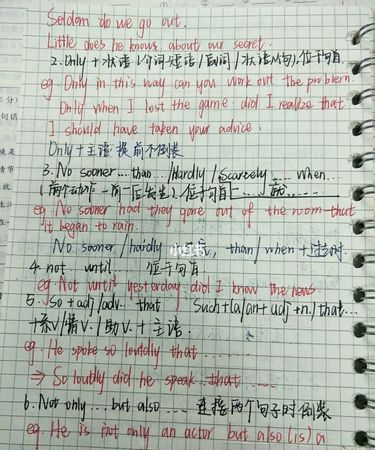 Seldom do we go out.
Little does he knows about our secret.
2. Only + 状语(个词短语/副词/状语从句),位于句首
eg. Only in this way can you work out the problem.
Only when I lost the game did I realize that
I should have taken your advice.
Only + 主语提前不倒装
3. No sooner... than... /Hardly / Scarcely ... when...
(两个动作一前一后发生), 位于句首 [一...就...
eg. No sooner had they gone out of the room that
it began to rain.
No sooner / hardly than / when + 过去时.
4. not until 位于句首
eg. Not until yesterday did I know the news
5. so + adj / adv. .. that Such + (a / an + adj + n.) that...
+ 系v / 情v. / 助v. + 主语.
eg. He spoke so loutdly that
⇒ So loutlly did he speak that
6. Not only ... but also .... 连接两个句子时倒装
eg. He is not only an actor but also (is) a
小红书
5分)
句话